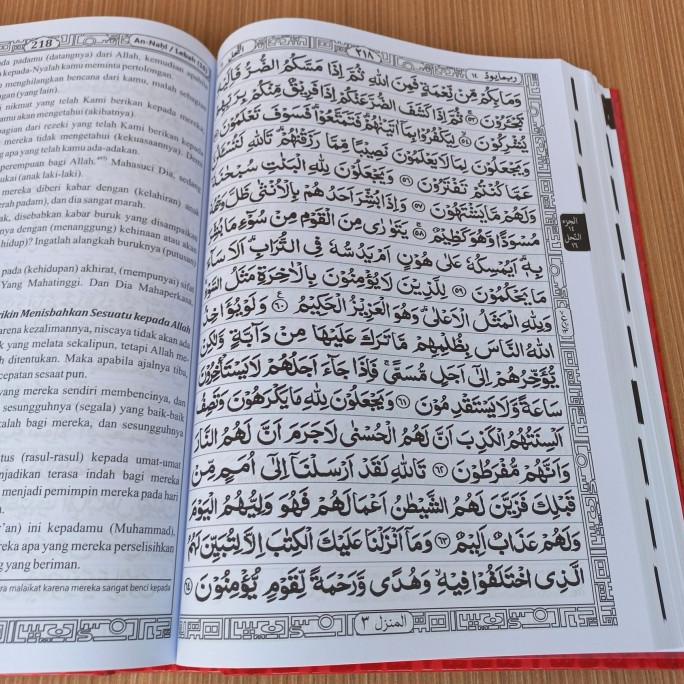 218
An-Naḥl / Lebah (16)
pada padamu (datangnya) dari Allah, kemudian apabila
kepada-Nyalah kamu meminta pertolongan.
menghilangkan bencana dari kamu, malah sebagian
(yang lain).
nikmat yang telah Kami berikan kepada mereka;
kamu akan mengetahui (akibatnya).
bagian dari rezeki yang telah Kami berikan kepada
mereka tidak mengetahui (kekuasaannya). Demi
apa yang telah kamu ada-adakan.
perempuan bagi Allah. Mahasuci Dia, sedang
sukai (anak laki-laki).
mereka diberi kabar dengan (kelahiran) anak
(merah padam), dan dia sangat marah.
disebabkan kabar buruk yang disampaikan
dengan (menanggung) kehinaan atau akan
hidup)? Ingatlah alangkah buruknya (putusan)
pada (kehidupan) akhirat, (mempunyai) sifat
Yang Mahatinggi. Dan Dia Mahaperkasa,
Menisbahkan Sesuatu kepada Allah
karena kezalimannya, niscaya tidak akan ada
yang melata sekalipun, tetapi Allah me-
ditentukan. Maka apabila ajalnya tiba,
sesaat pun.
yang mereka sendiri membencinya, dan
sesungguhnya (segala) yang baik-baik
bagi mereka, dan sesungguhnya
(rasul-rasul) kepada umat-umat
terasa indah bagi mereka
menjadi pemimpin mereka pada hari
ini kepadamu (Muhammad),
apa yang mereka perselisihkan
yang beriman.
malaikat karena mereka sangat benci kepada
النحل
٢١٨
ربما يود ١٤
وَمَا بِكُمْ مِّنْ نِّعْمَةٍ فَمِنَ اللّٰهِ ثُمَّ اِذَا مَسَّكُمُ الضُّرُّ
تَجْـَٔرُوْنَ ٥٣ ثُمَّ اِذَا كَشَفَ الضُّرَّ عَنْكُمْ اِذَا فَرِيْقٌ مِّنْكُمْ بِرَبِّهِمْ
يُشْرِكُوْنَ ٥٤ لِيَكْفُرُوْا بِمَآ اٰتَيْنٰهُمْ فَتَمَتَّعُوْا فَسَوْفَ تَعْلَمُوْنَ
وَيَجْعَلُوْنَ لِمَا لَا يَعْلَمُوْنَ نَصِيْبًا مِّمَّا رَزَقْنٰهُمْ تَاللّٰهِ
عَمَّا كُنْتُمْ تَفْتَرُوْنَ ٥٦ وَيَجْعَلُوْنَ لِلّٰهِ الْبَنٰتِ سُبْحٰنَهٗ
وَلَهُمْ مَّا يَشْتَهُوْنَ ٥٧ وَاِذَا بُشِّرَ اَحَدُهُمْ بِالْاُنْثٰى ظَلَّ
مُسْوَدًّا وَّهُوَ كَظِيْمٌ ٥٨ يَتَوَارٰى مِنَ الْقَوْمِ مِنْ سُوْۤءِ مَا
بِهٖ اَيُمْسِكُهٗ عَلٰى هُوْنٍ اَمْ يَدُسُّهٗ فِى التُّرَابِ اَلَا سَاۤءَ
مَا يَحْكُمُوْنَ ٥٩ لِلَّذِيْنَ لَا يُؤْمِنُوْنَ بِالْاٰخِرَةِ مَثَلُ السَّوْءِ
وَلِلّٰهِ الْمَثَلُ الْاَعْلٰى وَهُوَ الْعَزِيْزُ الْحَكِيْمُ ٦٠ وَلَوْ يُؤَاخِذُ
اللّٰهُ النَّاسَ بِظُلْمِهِمْ مَّا تَرَكَ عَلَيْهَا مِنْ دَاۤبَّةٍ وَّلٰكِنْ
يُّؤَخِّرُهُمْ اِلٰٓى اَجَلٍ مُّسَمًّى فَاِذَا جَاۤءَ اَجَلُهُمْ لَا يَسْتَأْخِرُوْنَ
سَاعَةً وَّلَا يَسْتَقْدِمُوْنَ ٦١ وَيَجْعَلُوْنَ لِلّٰهِ مَا يَكْرَهُوْنَ وَتَصِفُ
اَلْسِنَتُهُمُ الْكَذِبَ اَنَّ لَهُمُ الْحُسْنٰى لَا جَرَمَ اَنَّ لَهُمُ النَّارَ
وَاَنَّهُمْ مُّفْرَطُوْنَ ٦٢ تَاللّٰهِ لَقَدْ اَرْسَلْنَآ اِلٰٓى اُمَمٍ مِّنْ
قَبْلِكَ فَزَيَّنَ لَهُمُ الشَّيْطٰنُ اَعْمَالَهُمْ فَهُوَ وَلِيُّهُمُ الْيَوْمَ
وَلَهُمْ عَذَابٌ اَلِيْمٌ ٦٣ وَمَآ اَنْزَلْنَا عَلَيْكَ الْكِتٰبَ اِلَّا لِتُبَيِّنَ لَهُمُ
الَّذِى اخْتَلَفُوْا فِيْهِ وَهُدًى وَّرَحْمَةً لِّقَوْمٍ يُّؤْمِنُوْنَ ٦٤
المنزل ٣
الجزء
١٤
النحل
١٦